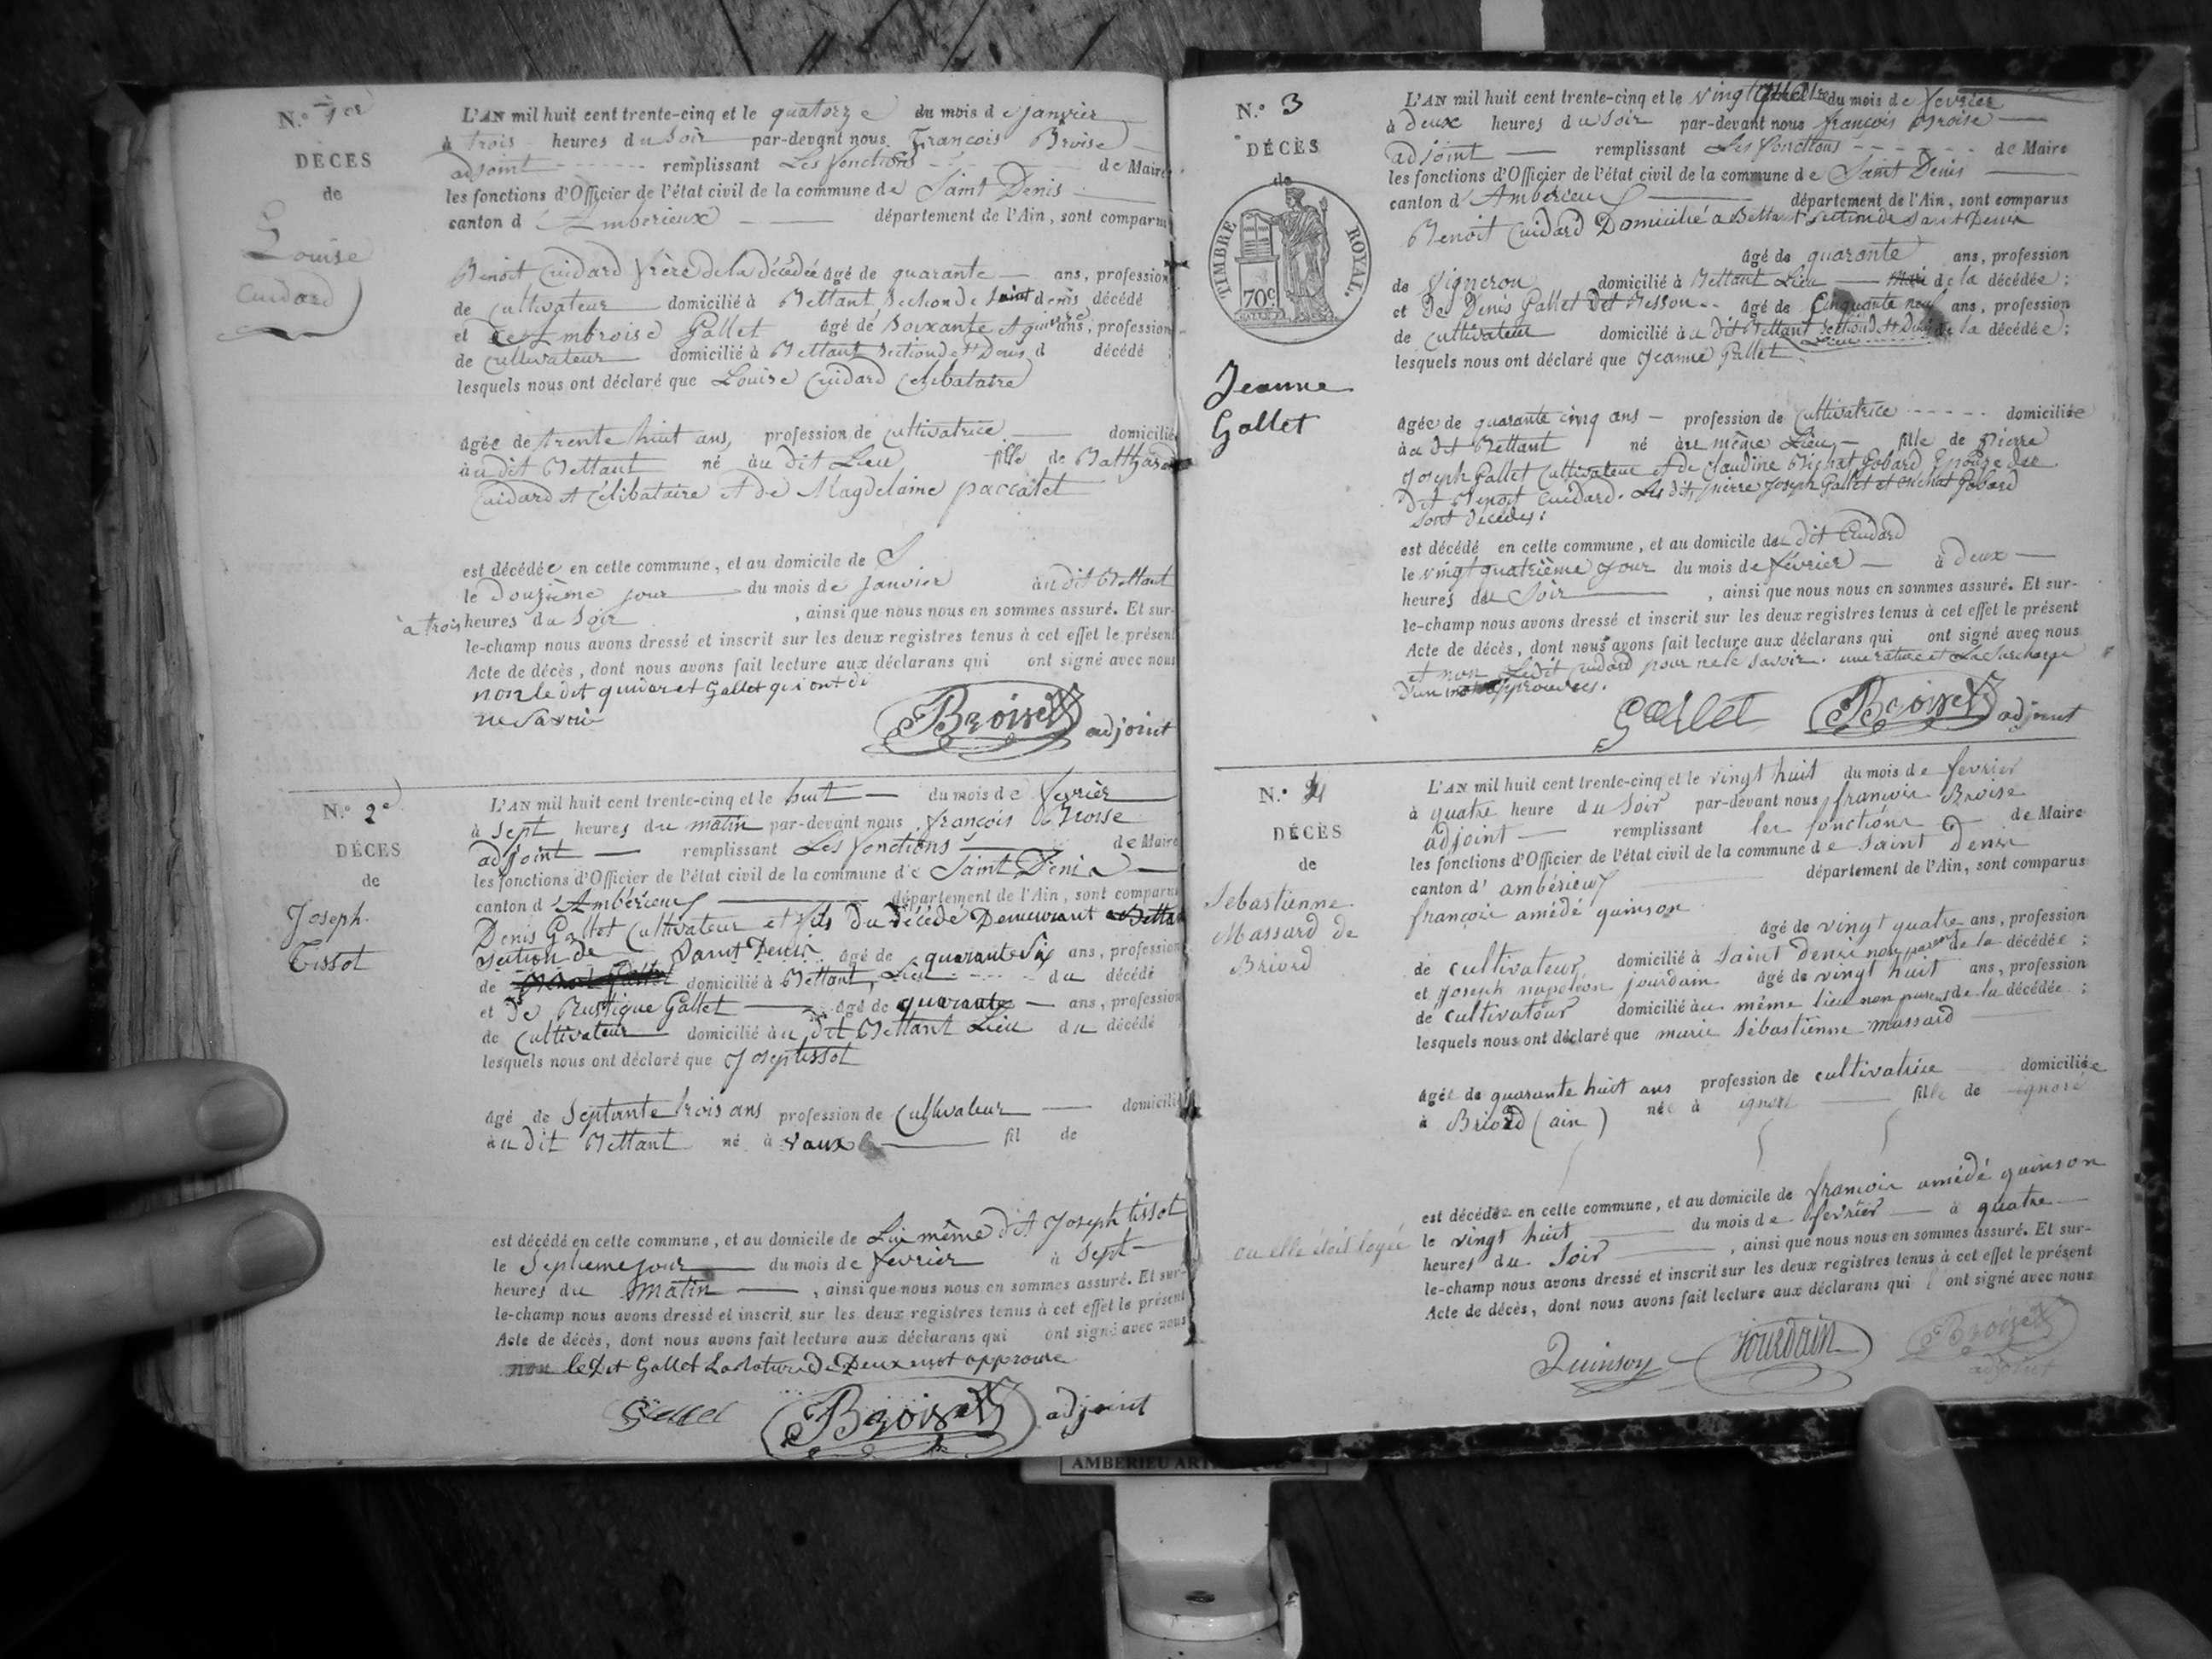 N.º 1er
DÉCES
de
Louise
Cuidard
L'AN mil huit cent trente-cinq et le quatorze du mois de janvier
à trois heures du soir par-devant nous François Broise
adjoint remplissant Les fonctions de Maire
les fonctions d'Officier de l'état civil de la commune de Saint Denis
canton d'Amberieux département de l'Ain, sont comparu
Benoit Cuidard frère de la décédée âgé de quarante ans, profession
de cultivateur domicilié à Bettant Section de Saint denis décédé
et de Ambroise Gallet âgé de soixante et quinze ans, profession
de cultivateur domicilié à Bettant Section de St Denis d décédé
lesquels nous ont déclaré que Louise Cuidard Celibataire
âgée de trente huit ans, profession de cultivatrice domicilié
à u dit Bettant né à u dit Lieu fille de Balthazard
Cuidard et Célibataire et de Magdelaine paccalet
est décédée en cette commune, et au domicile de
le Douzième jour du mois de Janvier à u dit Bettant
à trois heures du Soir, ainsi que nous nous en sommes assuré. Et sur-
le-champ nous avons dressé et inscrit sur les deux registres tenus à cet effet le présent
Acte de décès, dont nous avons fait lecture aux déclarans qui ont signé avec nous
non le dit quidar et Gallet qui ont di
ne savoir
Broise adjoint
N.º 2e
DÉCES
de
Joseph
Tissot
L'AN mil huit cent trente-cinq et le huit du mois de fevrier
à Sept heures du matin par-devant nous françois Broise
adjoint remplissant Les fonctions de Maire
les fonctions d'Officier de l'état civil de la commune de Saint Denis
canton d'Ambérieux département de l'Ain, sont comparu
Denis Gallet Cultivateur et fils du Décédé Demeurant a Bettan
Section de Saint Denis âgé de quarante Six ans, profession
de domicilié à Bettant, Lieu du décédé
et de Rustique Gallet âgé de quarante ans, profession
de Cultivateur domicilié à u dit Bettant Lieu du décédé
lesquels nous ont déclaré que Josep tissot
âgé de Septante trois ans profession de Cultivateur domicilié
à u dit Bettant né à vaux fil de
est décédé en cette commune, et au domicile de Lui même dit Joseph tissot
le Septieme jour du mois de fevrier à Sept
heures du matin, ainsi que nous nous en sommes assuré. Et sur-
le-champ nous avons dressé et inscrit sur les deux registres tenus à cet effet le présent
Acte de décès, dont nous avons fait lecture aux déclarans qui ont signé avec nous
non le dit Gallet La rature de Deux mot approuve
Gallet Broise adjoint
N.º 3
DÉCÈS
de
TIMBRE ROYAL.
70c
Jeanne
Gallet
L'AN mil huit cent trente-cinq et le vingt quatre du mois de fevrier
à deux heures du soir par-devant nous françois Broise
adjoint remplissant Les fonctions de Maire
les fonctions d'Officier de l'état civil de la commune de Saint Denis
canton d'Ambérieux département de l'Ain, sont comparus
Benoit Cuidard Domicilié a Bettant Section de Saint Denis
âgé de quarante ans, profession
de Vigneron domicilié à Bettant Lieu Mari de la décédée;
et De Denis Gallet dit Besson âgé de Cinquante neuf ans, profession
de cultivateur domicilié à u dit Bettant Section de St Denis de la décédée;
Lieu
lesquels nous ont déclaré que Jeanne Gallet
âgée de quarante cinq ans profession de Cultivatrice domiciliée
à u dit Bettant né à u même Lieu fille de Pierre
Joseph Gallet Cultivateur et de Claudine Michat Gobard Epouse du
dit Benoit Cuidard. Les dits pierre Joseph Gallet et Michat Gobard
sont décédés:
est décédé en cette commune, et au domicile du dit Cuidard
le vingt quatrième jour du mois de février à deux
heures du Soir, ainsi que nous nous en sommes assuré. Et sur-
le-champ nous avons dressé et inscrit sur les deux registres tenus à cet effet le présent
Acte de décès, dont nous avons fait lecture aux déclarans qui ont signé avec nous
et non Ledit Cuidard pour ne le savoir. une rature et La Surcharge
d'un mot approuvées.
Gallet Broise adjoint
N.º 4
DÉCÈS
de
Sébastienne
Massard de
Briord
L'AN mil huit cent trente-cinq et le vingt huit du mois de fevrier
à quatre heure du soir par-devant nous françois Broise
adjoint remplissant les fonctions de Maire
les fonctions d'Officier de l'état civil de la commune de Saint Denis
canton d'ambérieux département de l'Ain, sont comparus
françois amédé quinson
âgé de vingt quatre ans, profession
de cultivateur domicilié à Saint denis non parent de la décédée;
et Joseph napoléon jourdain âgé de vingt huit ans, profession
de cultivateur domicilié à u même lieu non parent de la décédée;
lesquels nous ont déclaré que marie Sébastienne massard
âgée de quarante huit ans profession de cultivatrice domiciliée
à Briord (ain) née à ignoré fille de ignoré
est décédée en cette commune, et au domicile de françois amédé quinson
ou elle étoit logée le vingt huit du mois de fevrier à quatre
heures du Soir, ainsi que nous nous en sommes assuré. Et sur-
le-champ nous avons dressé et inscrit sur les deux registres tenus à cet effet le présent
Acte de décès, dont nous avons fait lecture aux déclarans qui ont signé avec nous
Quinson Jourdain Broise
adjoint